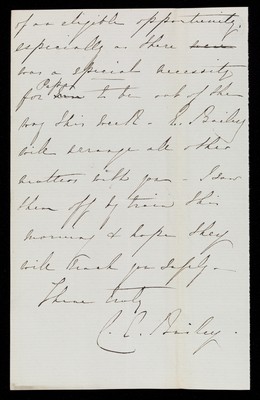 of an eligible opportunity,
especially as there
was a special necessity
Pappa
for to be out of the
way this week - C. Bailey
will arrange all other
matters with you - I saw
them off by train this
morning & hope they
will reach you safely -
Yours truly
C. E. Bailey.